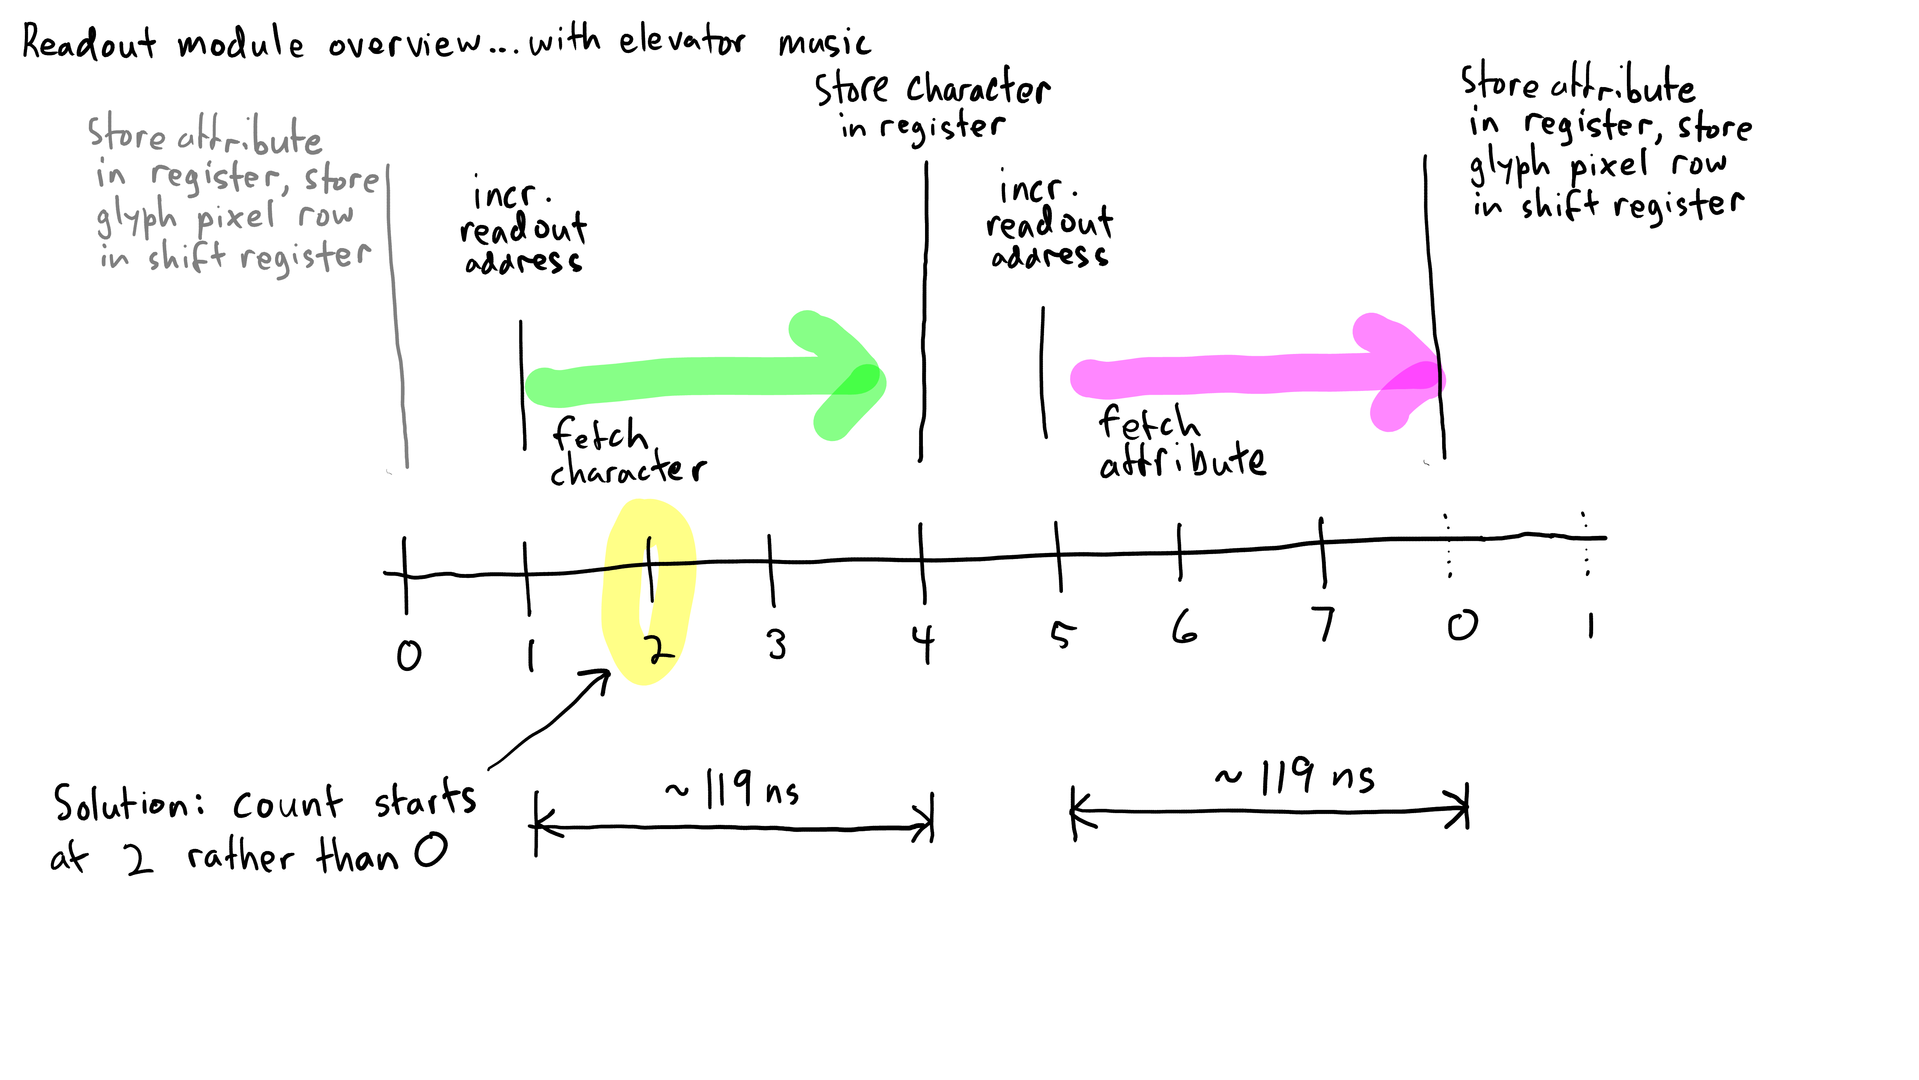 Readout module overview... with elevator music
Store attribute
in register, store
glyph pixel row
in shift register
incr.
readout
address
Store character
in register
incr.
readout
address
Store attribute
in register, store
glyph pixel row
in shift register
fetch
character
fetch
attribute
0 1 2 3 4 5 6 7 0 1
Solution: count starts
at 2 rather than 0
~ 119 ns
~ 119 ns